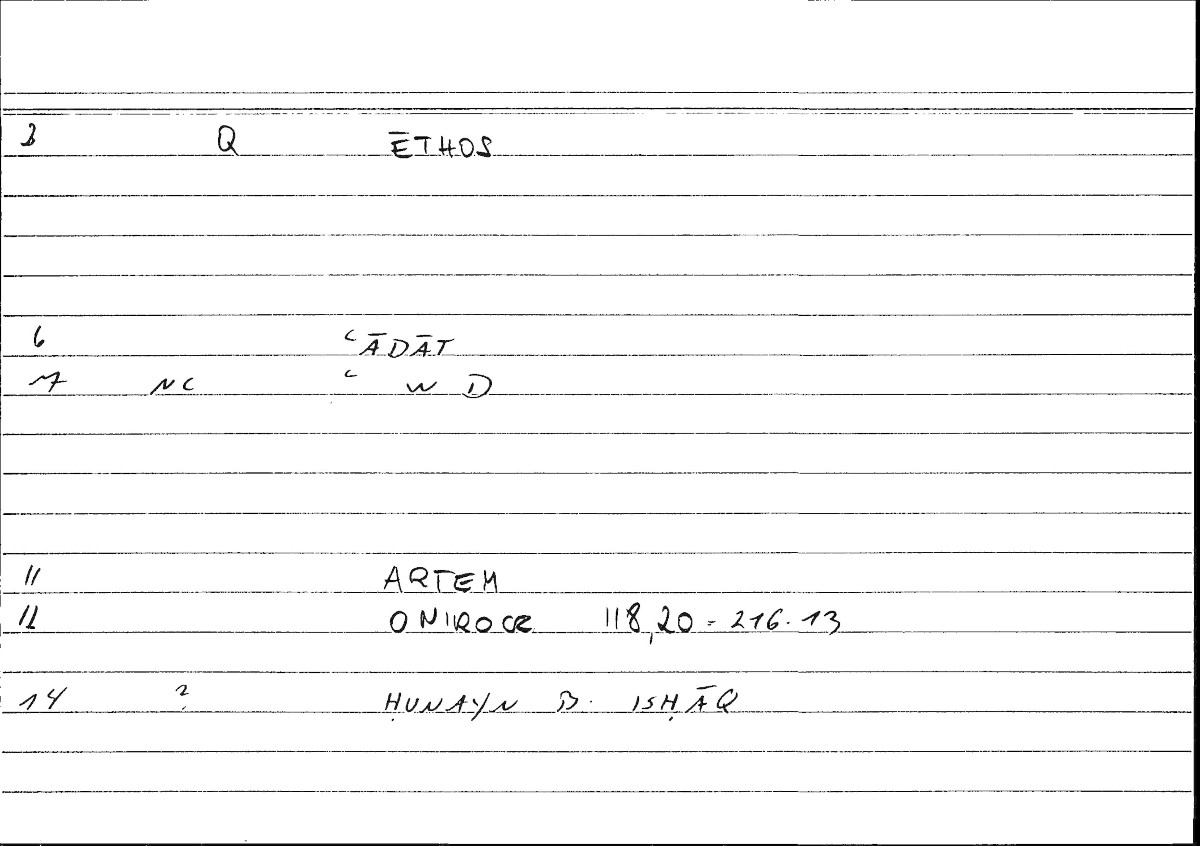 3 Q ĒTHOS
6 ʿĀDĀT
7 NC ʿ W D
11 ARTEM
12 ONIROCR 118,20-216.13
14 ? ḤUNAYN B. ISḤĀQ